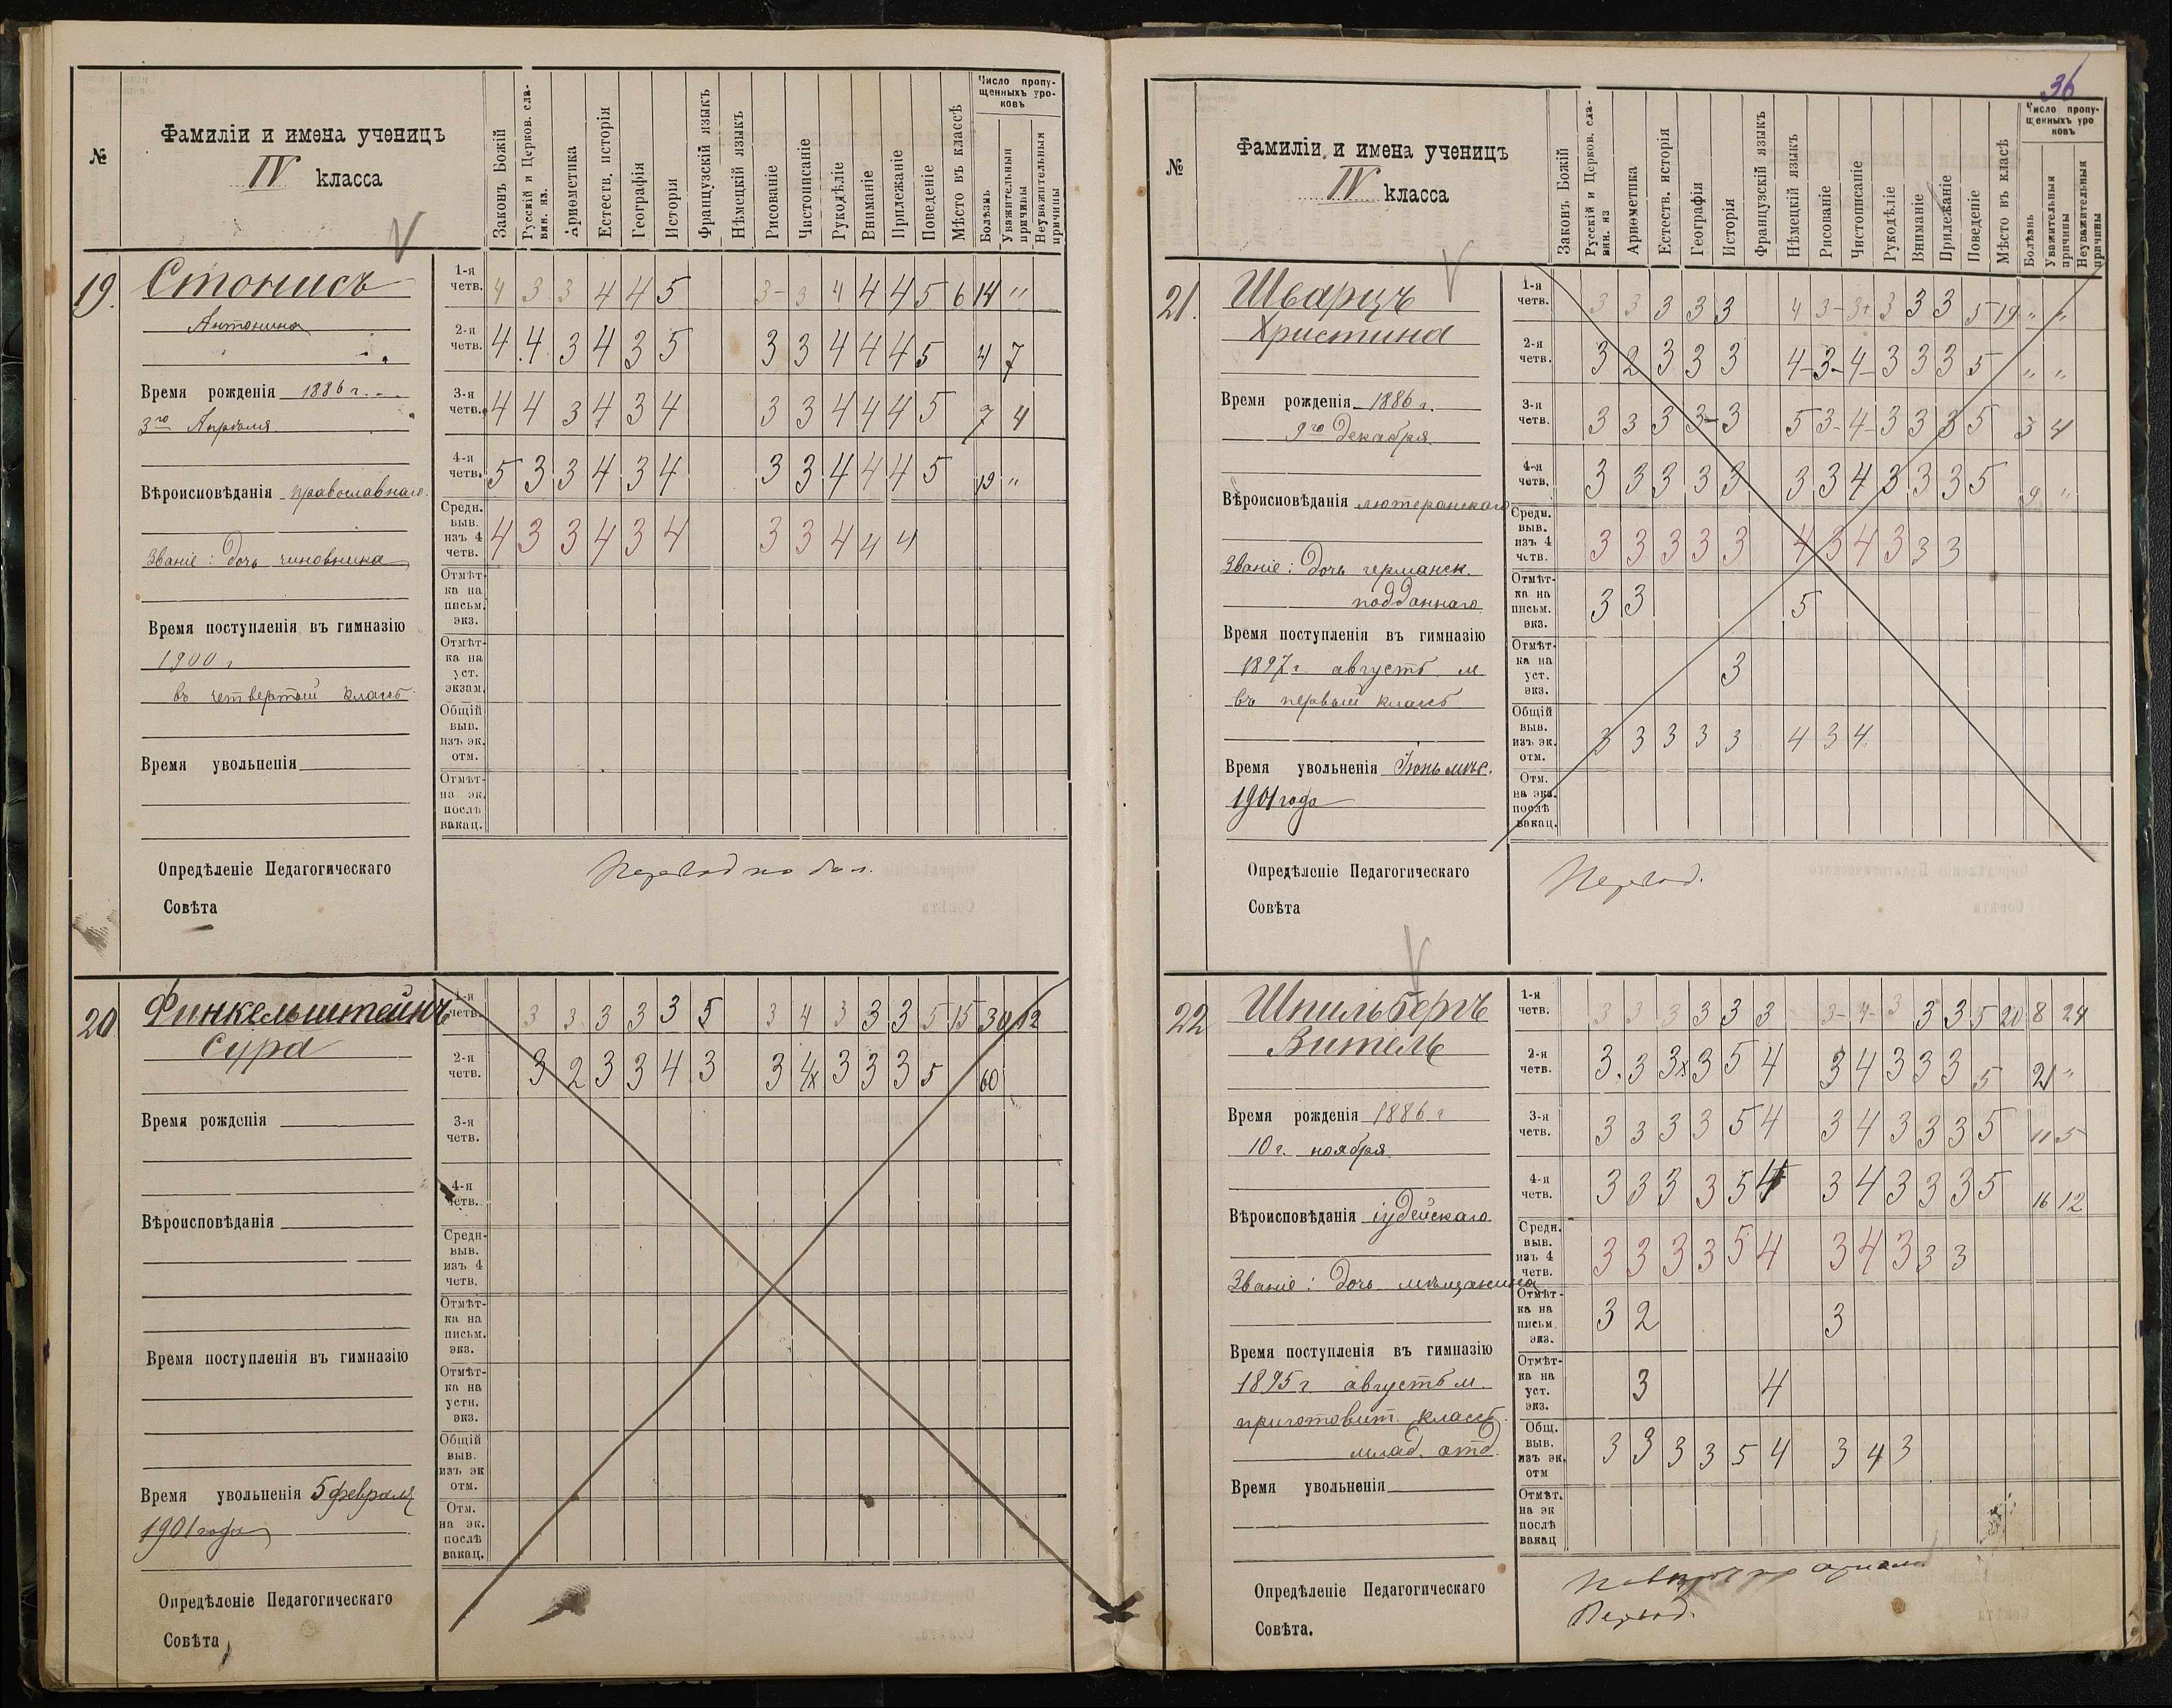 №
Фамиліи и имена ученицъ
IV класса
Законъ Божій
Русскій и Церков. сла-
вян. яз.
Ариѳметика
Естеств. исторія
Географія
Исторія
Французскій языкъ
Нѣмецкій языкъ
Рисованіе
Чистописаніе
Рукодѣліе
Вниманіе
Прилежаніе
Поведеніе
Мѣсто въ классѣ
Число пропу-
щенныхъ уро-
ковъ
Болѣзнь
Уважительныя
причины
Неуважительныя
причины
19. Стонисъ
Антонина
Время рожденія 1886 г.
3го Апрѣля
Вѣроисповѣданія православнаго
Званіе: дочь чиновника
Время поступленія въ гимназію
1900 г
въ четвертый классъ
Время увольненія
1-я четв. 4 3 3 4 4 5 3- 3 4 4 4 5 6 14 "
2-я четв. 4 4 3 4 3 5 3 3 4 4 4 5 4 7
3-я четв. 4 4 3 4 3 4 3 3 4 4 4 5 7 4
4-я четв. 5 3 3 4 3 4 3 3 4 4 4 5 19 "
Средн. выв. изъ 4 четв. 4 3 3 4 3 4 3 3 4 4 4
Отмѣт-ка на письм. экз.
Отмѣт-ка на уст. экзам.
Общій выв. изъ эк. отм.
Отмѣт-на эк. послѣ вакац.
Опредѣленіе Педагогическаго
Совѣта
20 Финкельштейнъ
Сура
Время рожденія
Вѣроисповѣданія
Время поступленія въ гимназію
Время увольненія 5 февраля
1901 года
1-я четв. 3 3 3 3 3 5 3 4 3 3 3 5 15 30 12
2-я четв. 3 2 3 3 4 3 3 4x 3 3 3 5 60
3-я четв.
4-я четв.
Средн- выв. изъ 4 четв.
Отмѣт-ка на письм. экз.
Отмѣт-ка на устн. экз.
Общій выв. изъ эк отм.
Отм. на эк. послѣ вакац.
Опредѣленіе Педагогическаго
Совѣта
36
№
Фамиліи и имена ученицъ
IV класса
Законъ Божій
Русскій и Церков. сла-
вян. яз
Ариѳметика
Естеств. исторія
Географія
Исторія
Французскій языкъ
Нѣмецкій языкъ
Рисованіе
Чистописаніе
Рукодѣліе
Вниманіе
Прилежаніе
Поведеніе
Мѣсто въ класѣ
Число пропу-
щенныхъ уро
ковъ
Болѣзнь
Уважительныя
причины
Неуважительныя
причины
21. Шварцъ
Христина
Время рожденія 1886 г.
9го декабря
Вѣроисповѣданія лютеранскаго
Званіе: дочь германск.
подданнаго
Время поступленія въ гимназію
1897 г. августѣ м
въ первый классъ
Время увольненія Іюнь мѣс.
1901 года
1-я четв. 3 3 3 3 3 4 3- 3+ 3 3 3 5 19 " "
2-я четв. 3 2 3 3 3 4- 3- 4- 3 3 3 5 " "
3-я четв. 3 3 3 3- 3 5 3- 4- 3 3 3 5 3 4
4-я четв. 3 3 3 3 3 3 3 4 3 3 3 5 9 "
Средн. выв. изъ 4 четв. 3 3 3 3 3 4 3 4 3 3 3
Отмѣт-ка на письм. экз. 3 3 5
Отмѣт-ка на уст. экз. 3
Общій выв. изъ эк. отм. 3 3 3 3 3 4 3 4
Отм. на экз. послѣ вакац.
Опредѣленіе Педагогическаго
Совѣта
Перевод.
22 Шпильбергъ
Витель
Время рожденія 1886 г
10 г. ноября
Вѣроисповѣданія іудейскаго
Званіе: дочь мѣщанина
Время поступленія въ гимназію
1895 г августѣ м.
приготовит. классъ
млад. отд.
Время увольненія
1-я четв. 3 3 3 3 3 3 3- 4- 3 3 3 5 20 8 24
2-я четв. 3. 3 3x 3 5 4 3 4 3 3 3 5 21 "
3-я четв. 3 3 3 3 5 4 3 4 3 3 3 5 11 5
4-я четв. 3 3 3 3 5 4 3 4 3 3 3 5 16 12
Средн. выв. изъ 4 четв. 3 3 3 3 5 4 3 4 3 3 3
Отмѣт-ка на письм. экз. 3 2 3
Отмѣт-ка на уст. экз. 3 4
Общ. выв. изъ эк. отм 3 3 3 3 5 4 3 4 3
Отмѣт. на эк послѣ вакац
Опредѣленіе Педагогическаго
Совѣта.
Перевод.